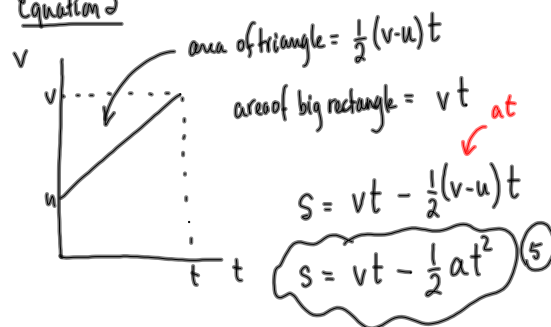 Equation 2
area of triangle = ½(v-u)t
v
v
area of big rectangle = vt
at
u
s = vt - ½(v-u)t
s = vt - ½at² ⑤
t t